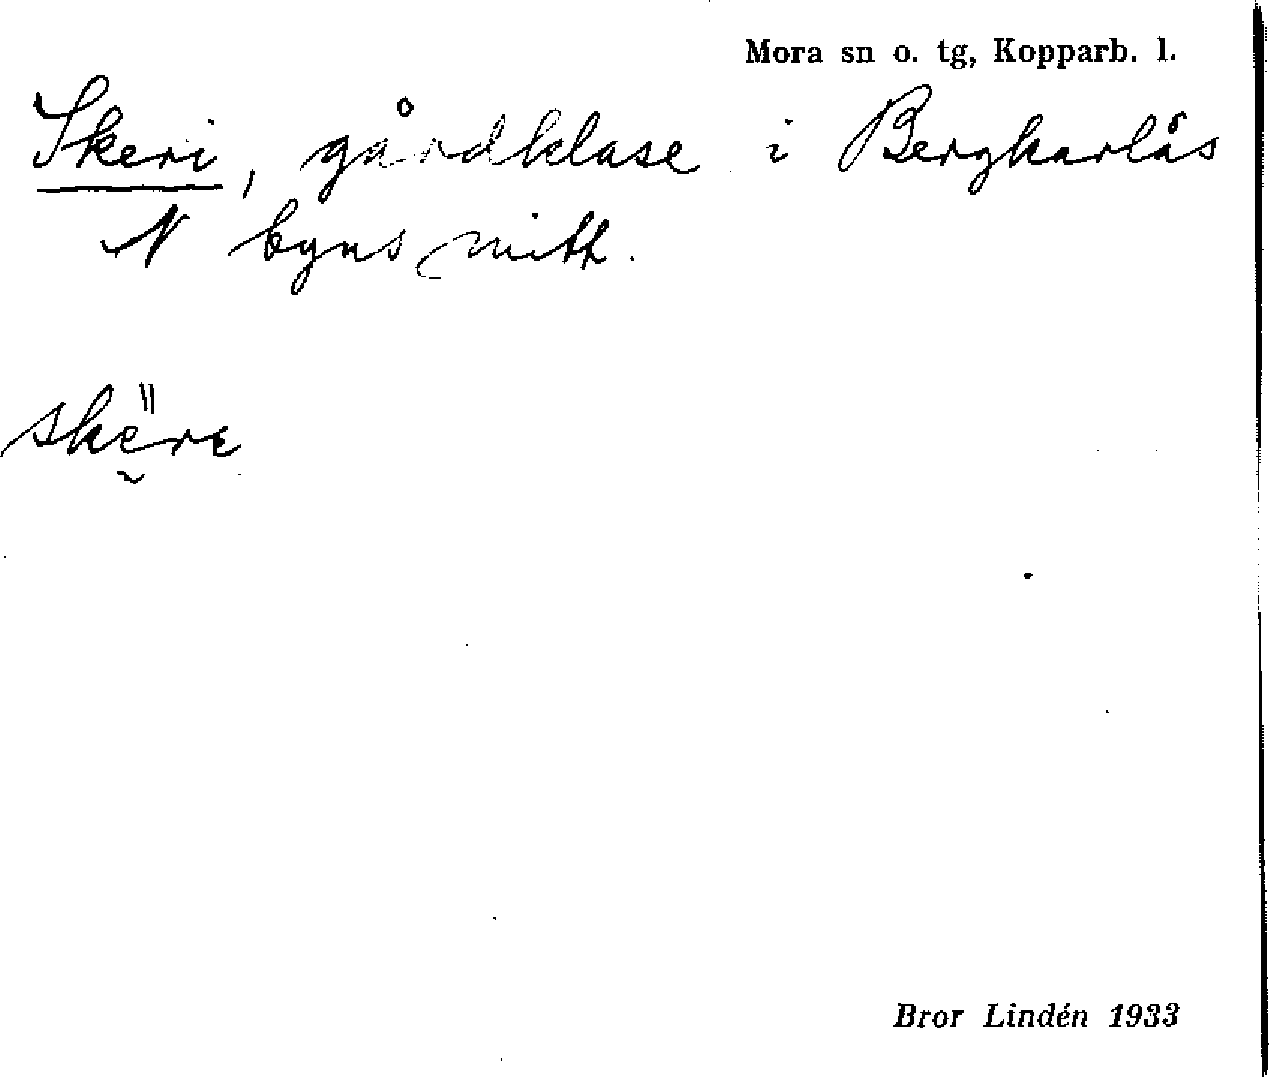 Mora sn o. tg, Kopparb. l.
Skeri, gårdklase i Bergkarlås
N byns mitt.
Bror Lindén 1933